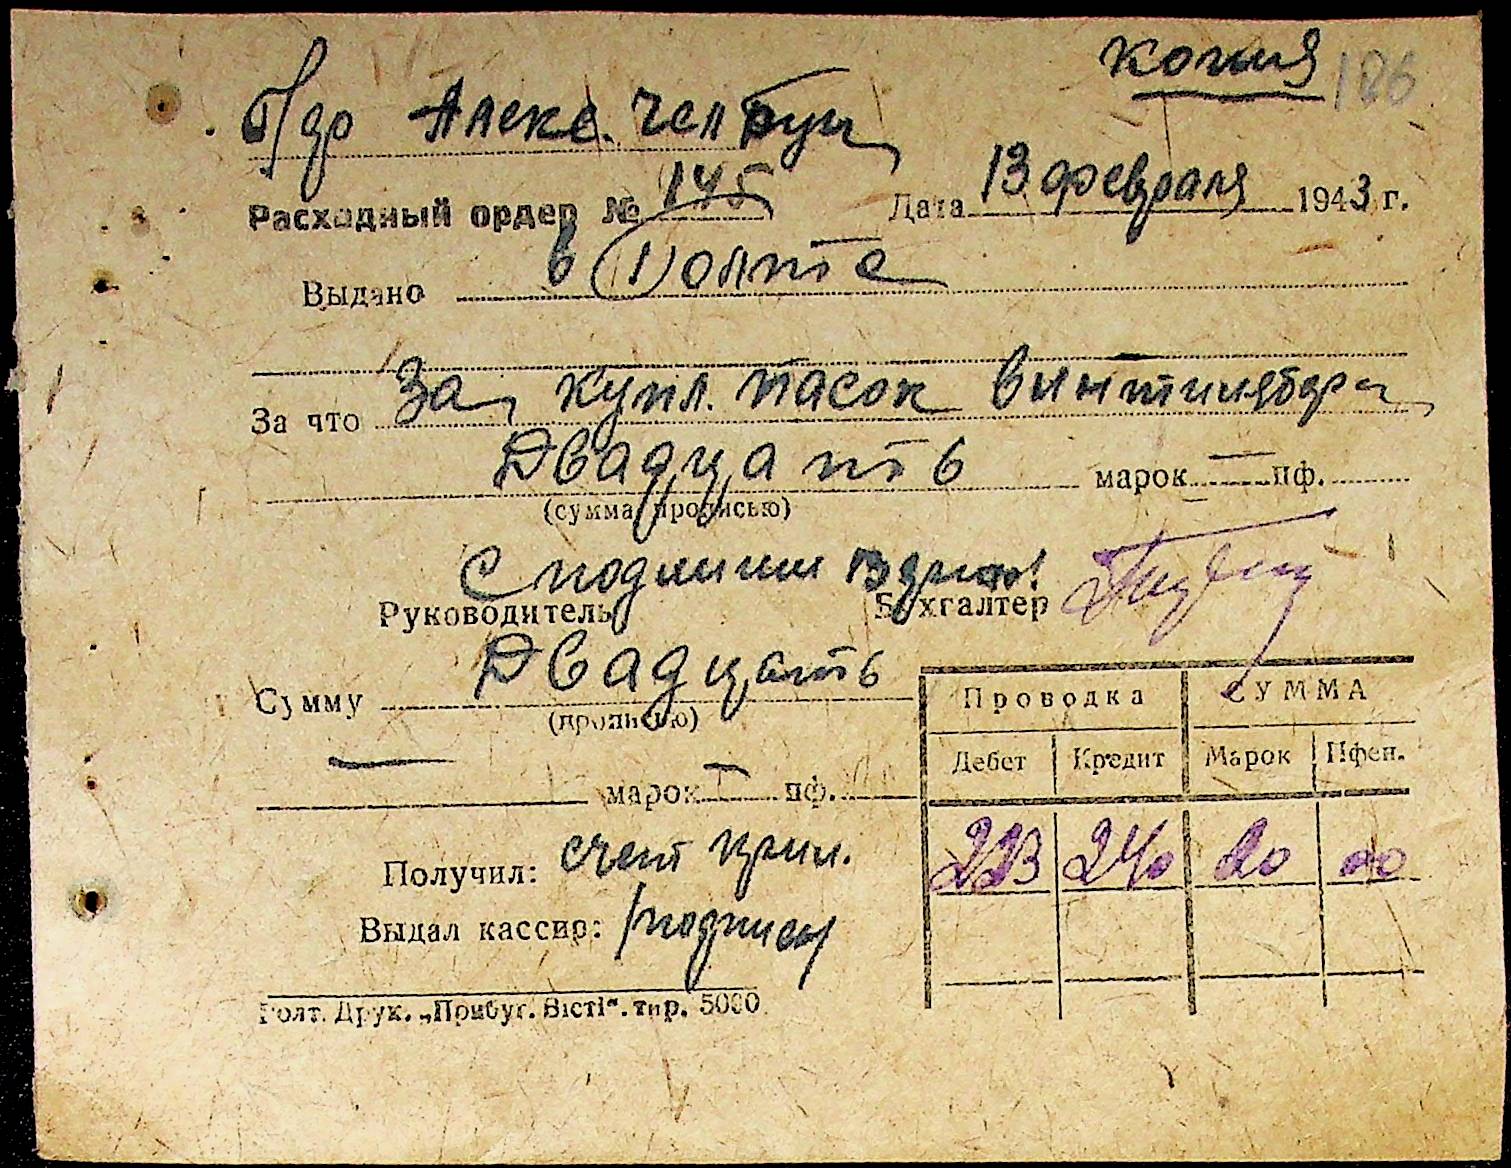 копия 186
Алекс.
Расходный ордер № 145 Дата 13 февраля 1943 г.
Выдано в Голте
За что За купл. пасок
Двадцать марок — пф.
(сумма прописью)
С подлинным верно!
Руководитель Бухгалтер
Сумму Двадцать
(прописью)
— марок — пф.
Проводка СУММА
Дебет Кредит Марок Пфен.
223 240 20 00
Получил: счет прил.
Выдал кассир: /подпись/
Голт. Друк. „Прибуг. Вісті“. тир. 5000